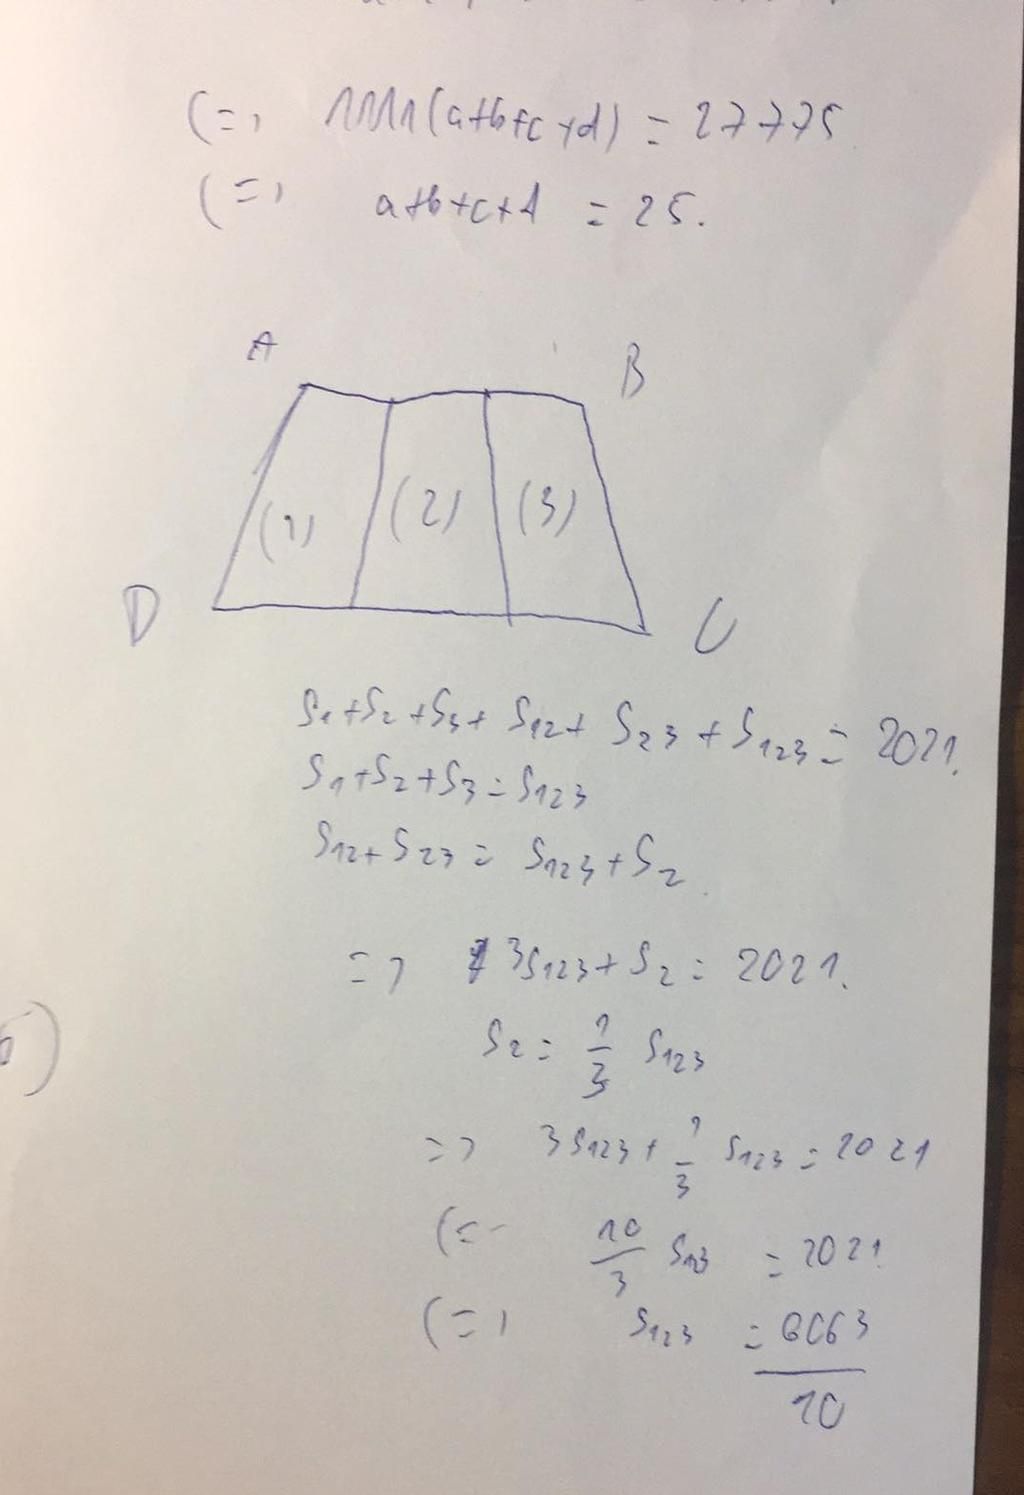 (=) 1111(a+b+c+d) = 27775
(=) a+b+c+d = 25.
A
B
(1) (2) (3)
D
C
S1+S2+S3+ S12+ S23 + S123 = 2021.
S1+S2+S3 = S123
S12+S23 = S123+S2.
=) 3S123+S2 = 2021.
S2 = 1/3 S123
=) 3S123+ 1/3 S123 = 2021
(= 10/3 S123 = 2021
(=) S123 = 6063/10